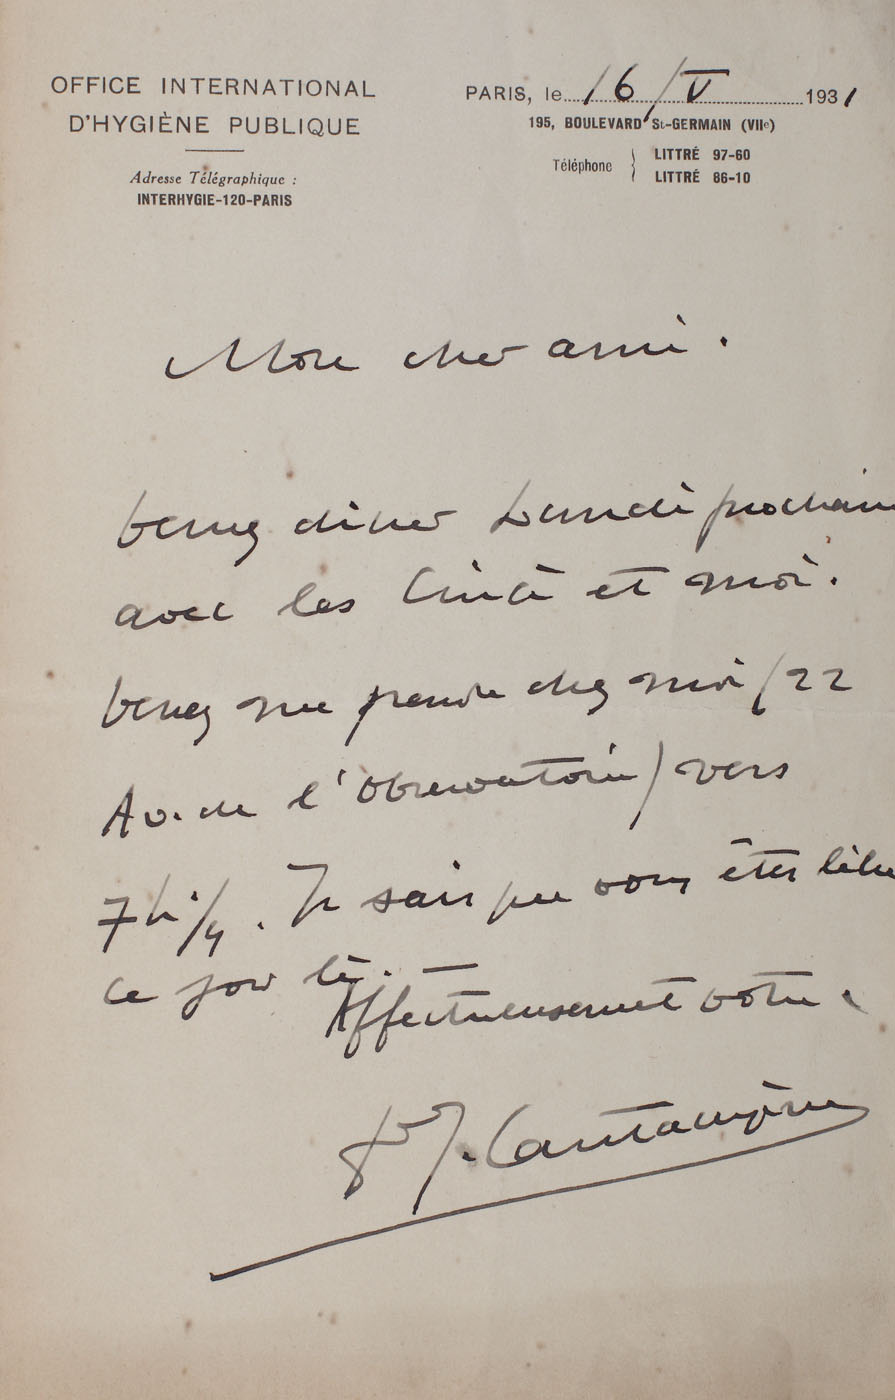 OFFICE INTERNATIONAL
D'HYGIÈNE PUBLIQUE
Adresse Télégraphique :
INTERHYGIE-120-PARIS
PARIS, le 16/V 1931
195, BOULEVARD St-GERMAIN (VIIe)
Téléphone
LITTRÉ 97-60
LITTRÉ 86-10
Mon cher ami.
Venez diner Lundi prochain
avec les et moi.
Venez me prendre chez moi (22
Av. de l'Observatoire) vers
7h 1/4. Je sais que vous êtes libre
ce jour là. —
Affectueusement votre.
J. Cantacuzène